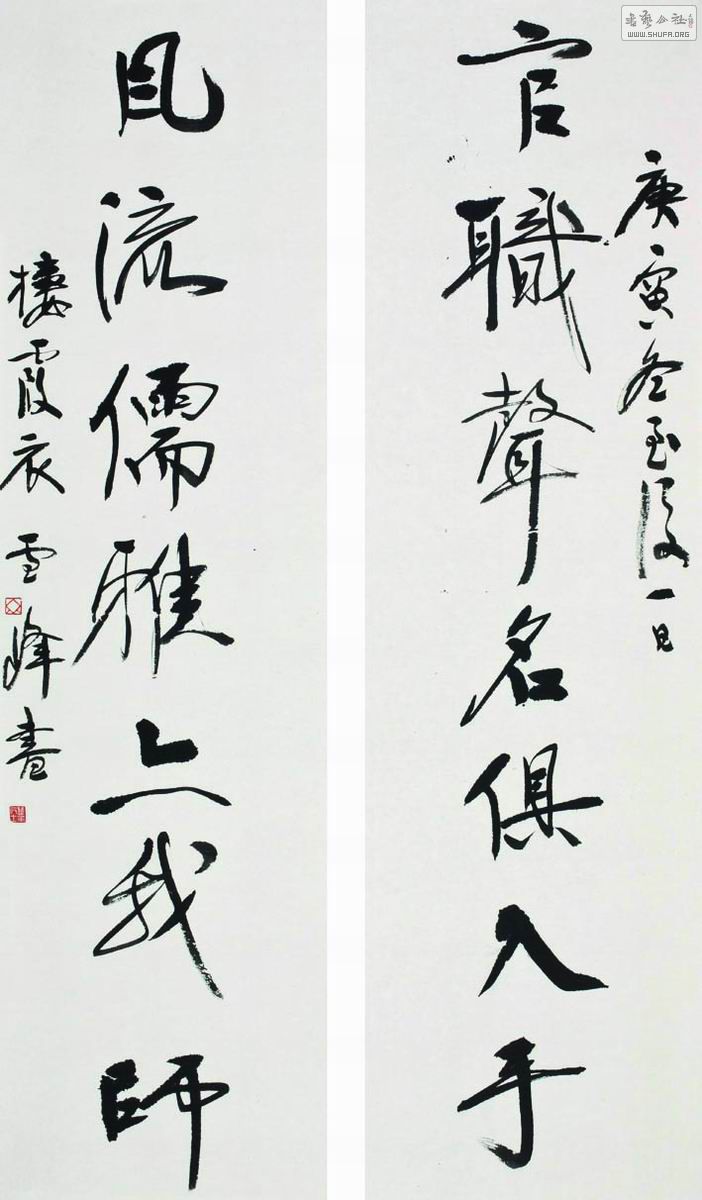 庚寅冬至後一日
官職聲名俱入手
風流儒雅亦我師
棲霞衣雪峰書
书艺公社
WWW.SHUFA.ORG